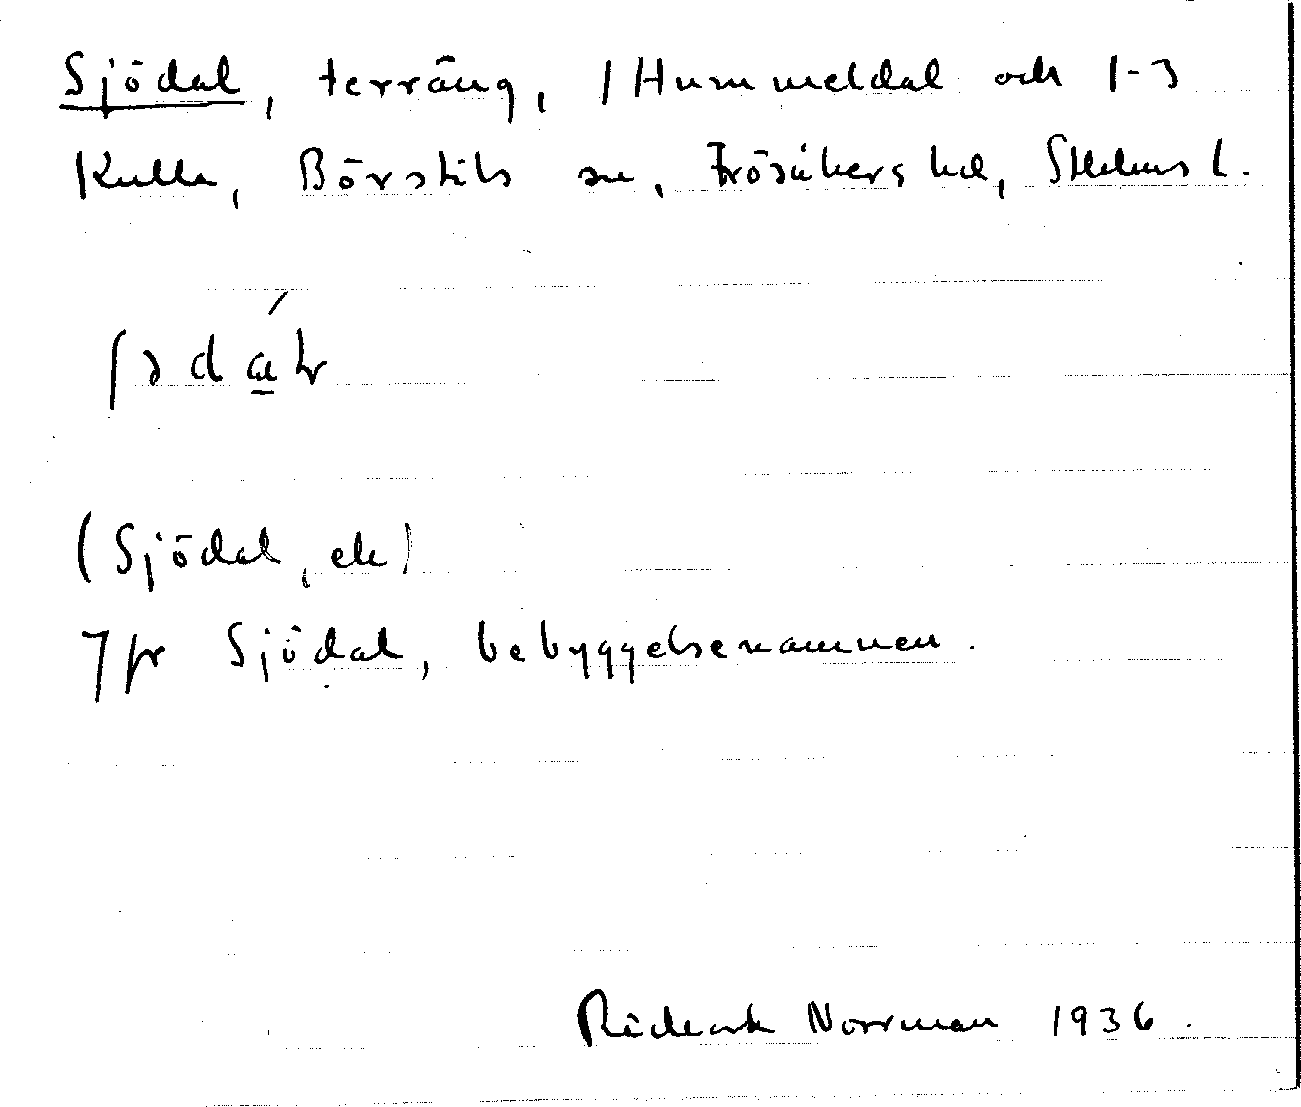 Sjödal, terräng, 1 Hummeldal och 1-3
Kulla, Börstils sn, Frösåkers hd, Sthlms l.
(Sjödal, ek)
Jfr Sjödal, bebyggelsenamnen.
Rickard Norrman 1936.